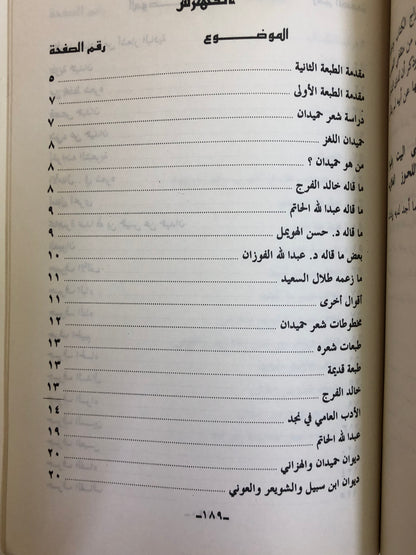 الفهرس
الموضوع رقم الصفحة
مقدمة الطبعة الثانية ٥
مقدمة الطبعة الأولى ٧
دراسة شعر حميدان ٧
حميدان اللغز ٨
من هو حميدان ؟ ٨
ما قاله خالد الفرج ٨
ما قاله عبدالله الحاتم ٩
ما قاله د. حسن الهويمل ٩
بعض ما قاله د. عبدالله الفوزان ١٠
ما زعمه طلال السعيد ١١
أقوال أخرى ١١
مخطوطات شعر حميدان ١٢
طبعات شعره ١٣
طبعة قديمة ١٣
خالد الفرج ١٣
الأدب العامي في نجد ١٤
عبدالله الحاتم ١٩
ديوان حميدان والهزاني ٢٠
ديوان ابن سبيل والشويعر والعوني ٢٠
ـ١٨٩ـ